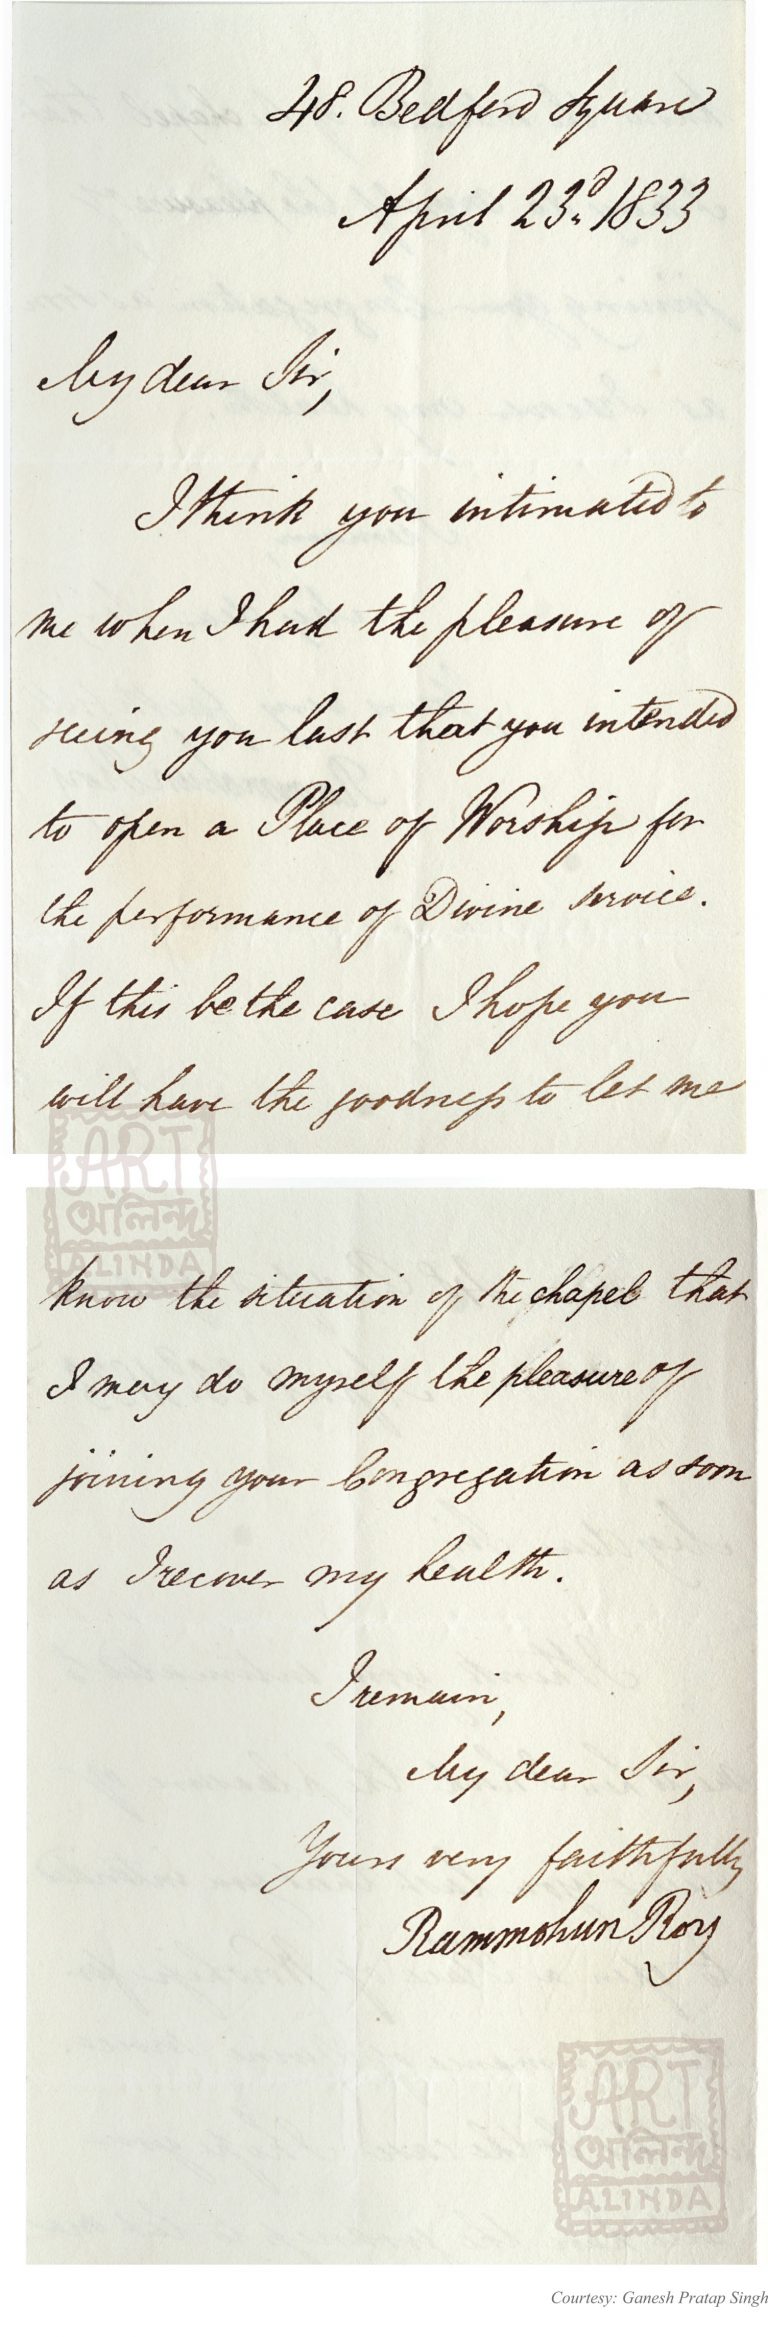 48. Bedford Square
April 23d. 1833
My dear Sir,
I think you intimated to
me when I had the pleasure of
seeing you last that you intended
to open a Place of Worship for
the performance of Divine service.
If this be the case I hope you
will have the goodness to let me
ART
অলিন্দ
ALINDA
know the situation of the chapel that
I may do myself the pleasure of
joining your Congregation as soon
as I recover my health.
I remain,
My dear Sir,
Yours very faithfully
Rammohun Roy
ART
অলিন্দ
ALINDA
Courtesy: Ganesh Pratap Singh